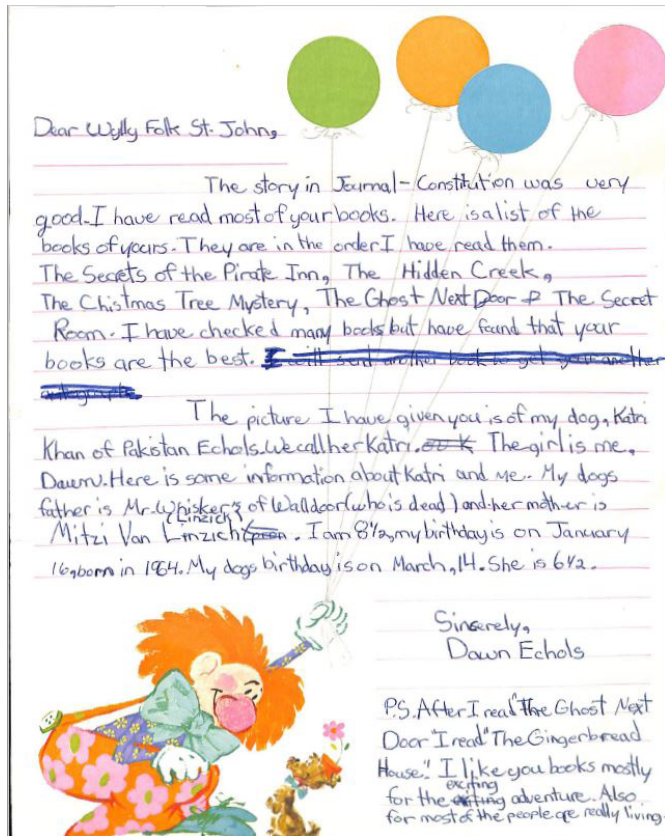 Dear Wylly Folk St. John,
The story in Journal-Constitution was very
good. I have read most of your books. Here is a list of the
books of yours. They are in the order I have read them.
The Secrets of the Pirate Inn, The Hidden Creek,
The Chistmas Tree Mystery, The Ghost Next Door & The Secret
Room. I have checked many books but have found that your
books are the best. I will sent another book to get your another
autograph.
The picture I have given you is of my dog, Katri
Khan of Pakistan Echols. We call her Katri. The girl is me,
Dawn. Here is some information about Katri and me. My dogs
father is Mr. Whiskers of Walldoor (who is dead) and her mother is
(Linzich)
Mitzi Van Linzich. I am 8½, my birthday is on January
16, born in 1964. My dogs birthday is on March, 14. She is 6½.
Sincerely,
Dawn Echols
P.S. After I read "The Ghost Next
Door" I read "The Gingerbread
House." I like you books mostly
exciting
for the adventure. Also
for most of the people are really living